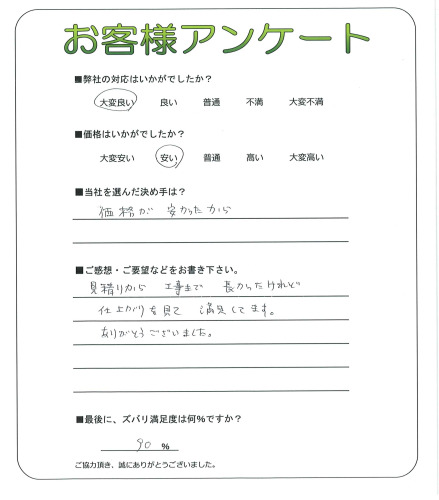 お客様アンケート
■弊社の対応はいかがでしたか？
大変良い 良い 普通 不満 大変不満
■価格はいかがでしたか？
大変安い 安い 普通 高い 大変高い
■当社を選んだ決め手は？
価格が 安かったから
■ご感想・ご要望などをお書き下さい。
見積りから 工事まで 長かったけれど
仕上がりを見て 満足してます。
ありがとうございました。
■最後に、ズバリ満足度は何%ですか？
90 %
ご協力頂き、誠にありがとうございました。